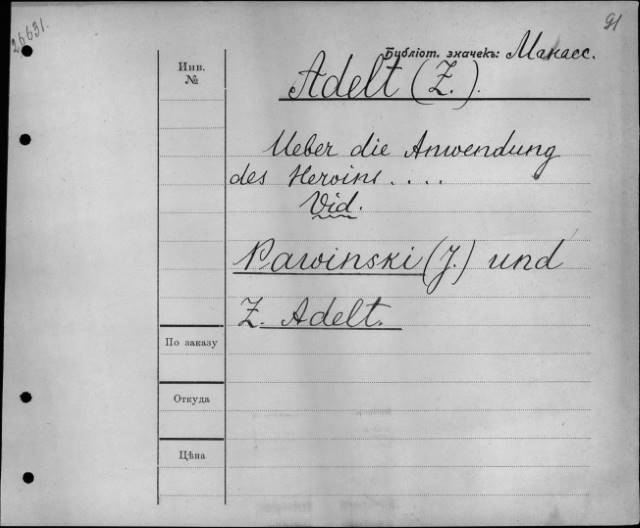 26631.
91
Библіот. значекъ: Манасс.
Инв.
№
Adelt (Z.).
Ueber die Anwendung
des Heroins....
Vid.
Pawinski (J.) und
Z. Adelt.
По заказу
Откуда
Цѣна